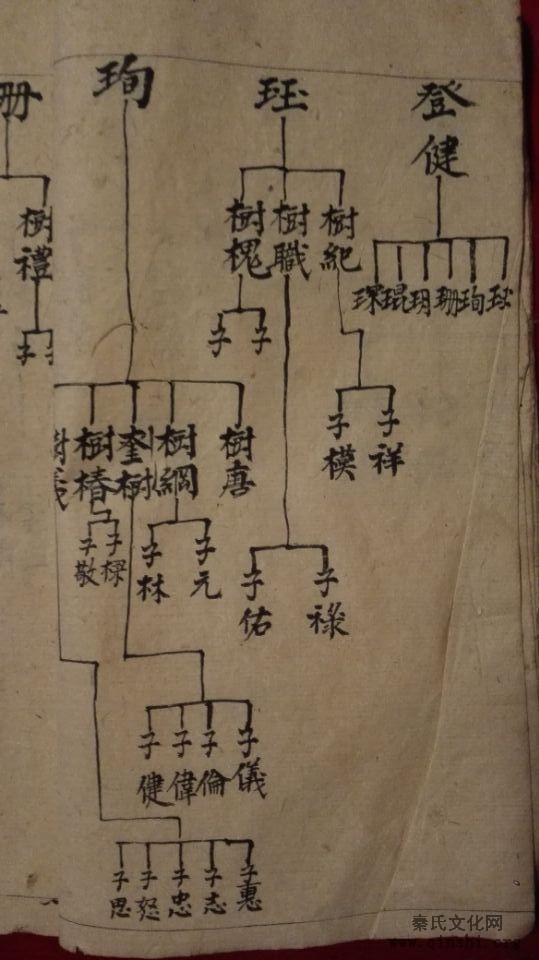 登健
珏
珣
珊
琛琨玥珊珣珏
樹紀
樹職
樹槐
樹禮
子祥
子模
子
子
子
樹唐
樹綱
奎樹
樹椿
樹義
子元
子林
子樑
子敬
子祿
子佑
子儀
子倫
子偉
子健
子惠
子志
子忠
子恕
子思
秦氏文化网
www.qinshi.org